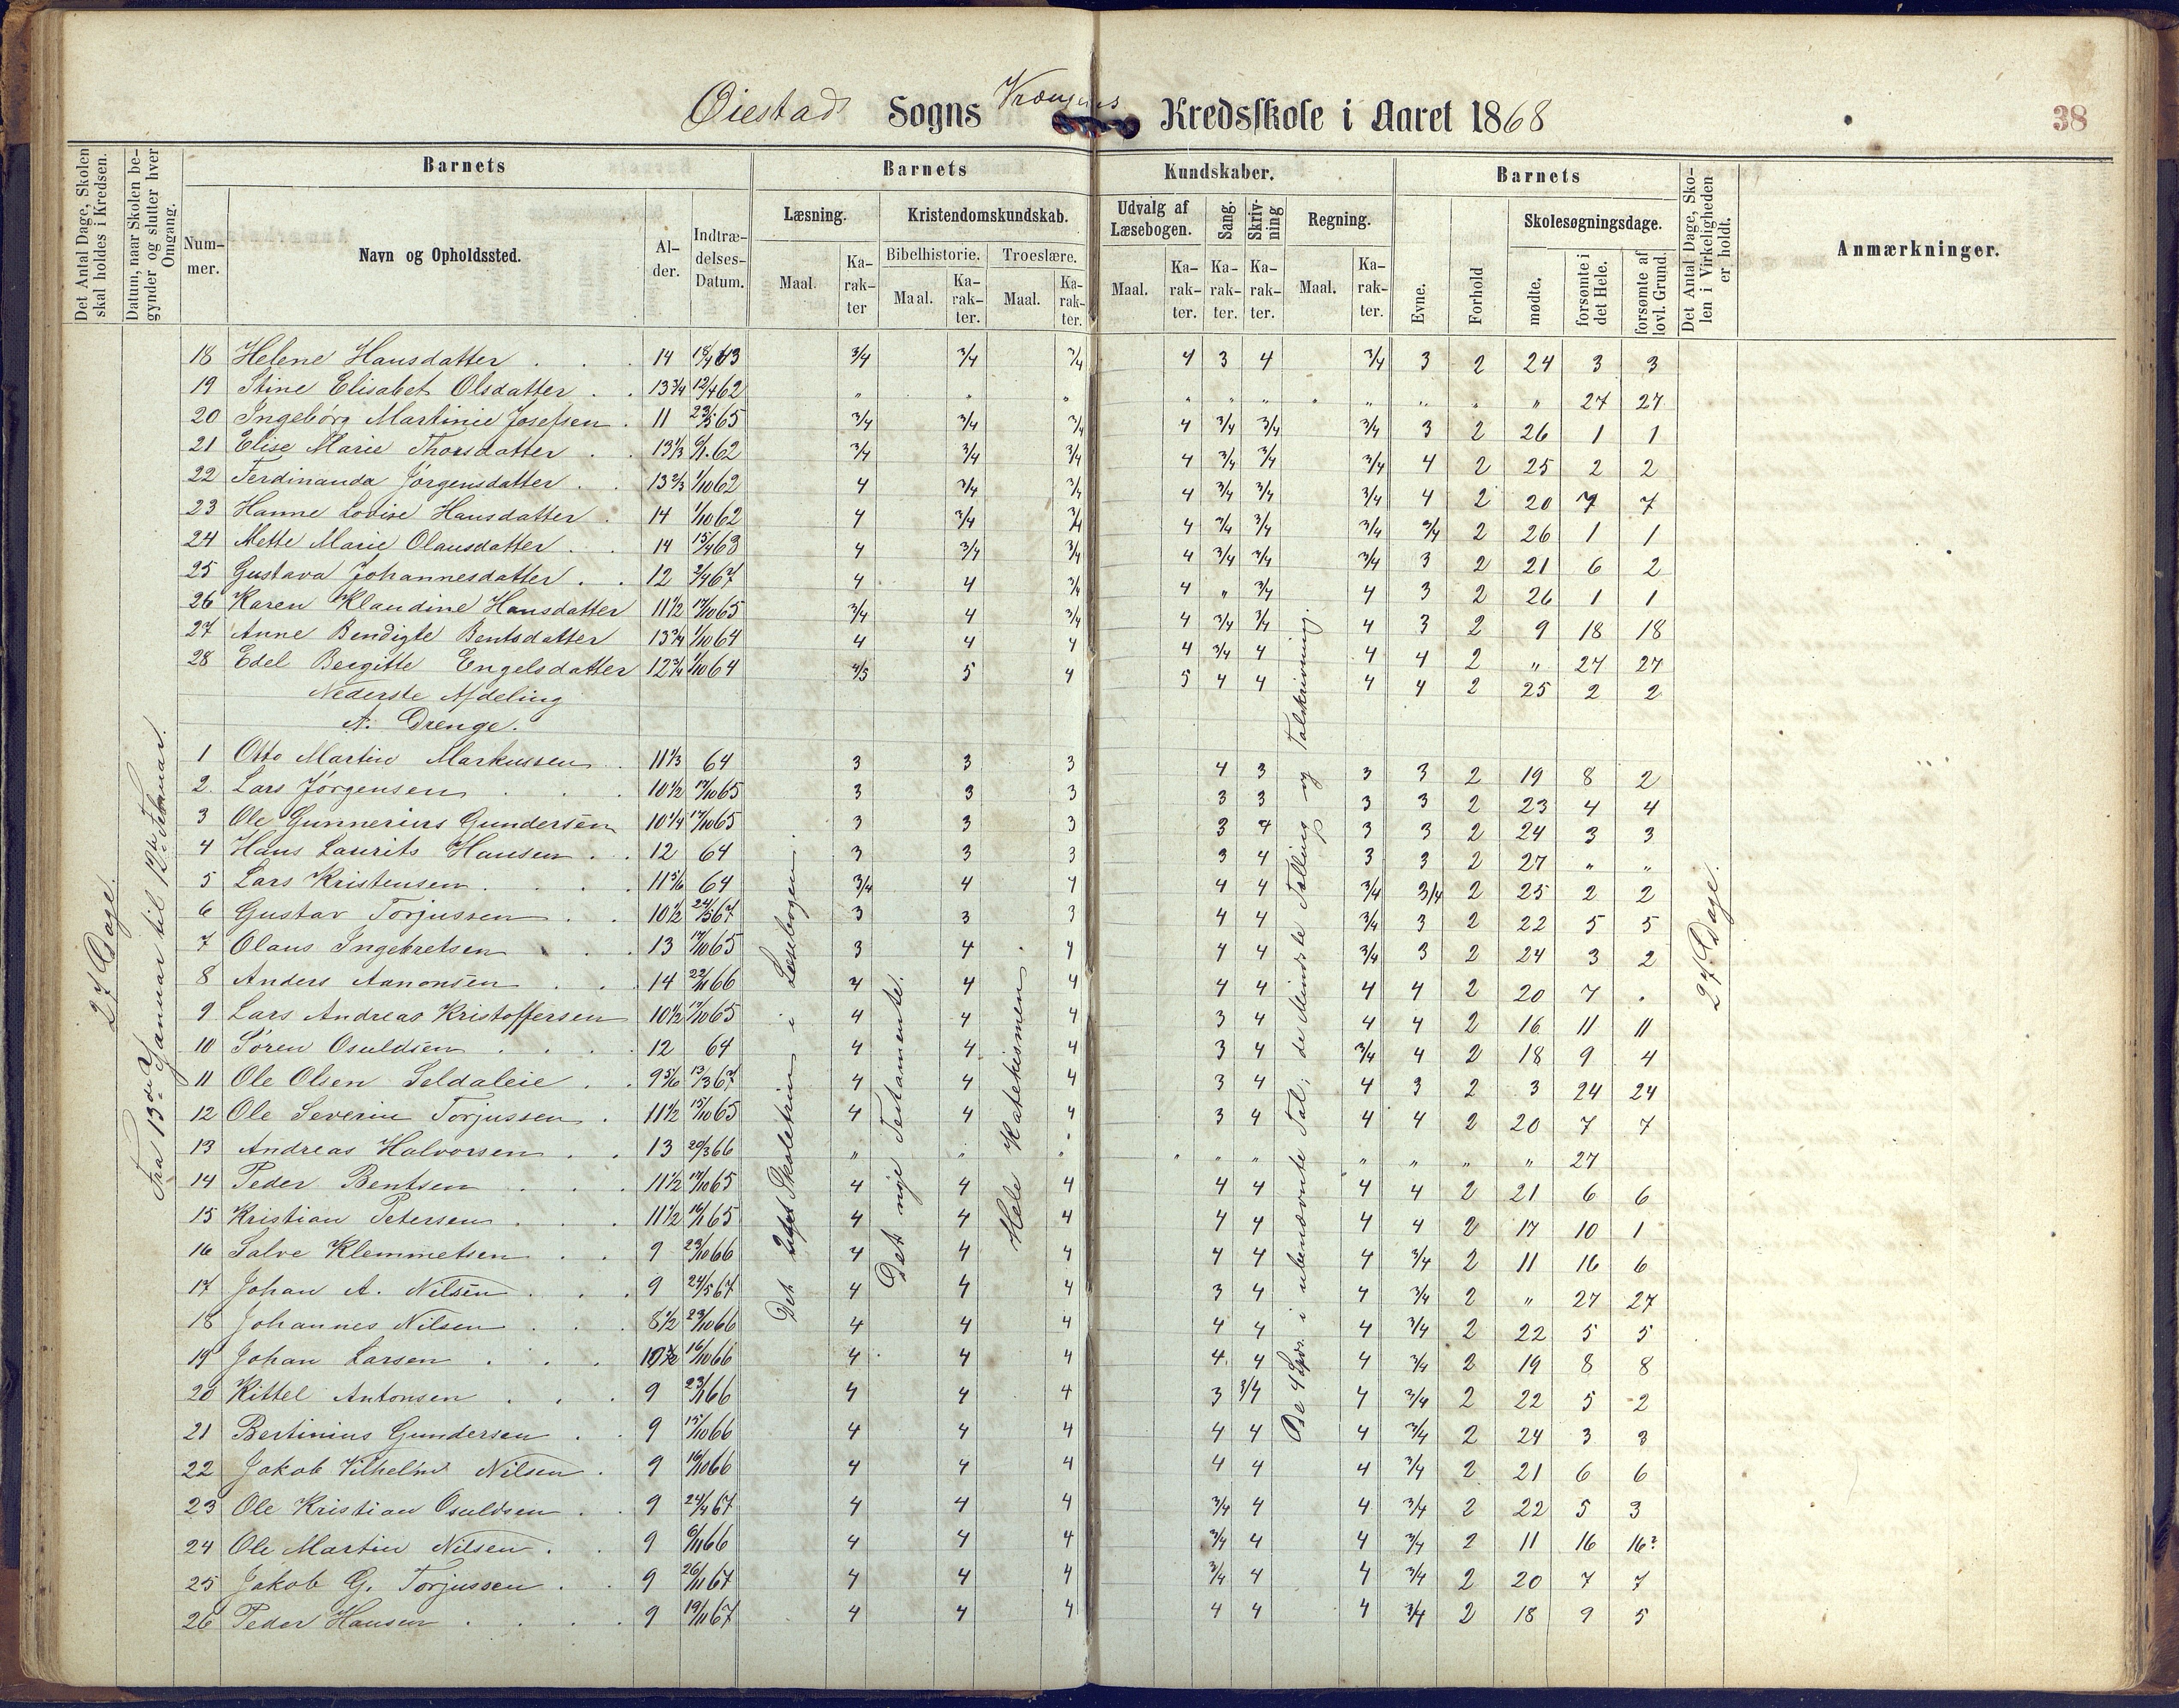 Øiestad Sogns Kredsskole i Aaret 1868
38
Det Antal Dage, Skolen skal holdes i Kredsen.
Datum, naar Skolen begynder og slutter hver Omgang.
Barnets
Nummer.
Navn og Opholdssted.
Alder.
Indtrædelses-Datum.
Barnets Kundskaber.
Læsning. Maal. Karakter
Kristendomskundskab.
Bibelhistorie. Maal. Karakter.
Troeslære. Maal. Karakter.
Udvalg af Læsebogen. Maal. Karakter.
Sang. Karakter.
Skrivning Karakter.
Regning. Maal. Karakter.
Barnets
Evne.
Forhold
Skolesøgningsdage.
mødte.
forsømte i det Hele.
forsømte af lovl. Grund.
Det Antal Dage, Skolen i Virkeligheden er holdt.
Anmærkninger.
27 Dage.
Fra 13de Januar til 12te Februar.
18 Helene Hansdatter 14 3/4 3/4 3/4 4 3 4 3/4 3 2 24 3 3
19 Stine Elisabet Olsdatter 13 3/4 12/4 62 " " " " " " " " " " 27 27
20 Ingebörg Martinie Josefsen 11 23/5 65 3/4 3/4 3/4 4 3/4 3/4 3/4 3 2 26 1 1
21 Elise Marie Thorsdatter 13 1/3 6/1 62 3/4 3/4 3/4 4 3/4 3/4 3/4 4 2 25 2 2
22 Ferdinanda Jörgensdatter 13 2/3 1/10 62 4 3/4 3/4 4 3/4 3/4 3/4 4 2 20 7 7
23 Hanne Lovise Hansdatter 14 1/10 62 4 3/4 3/4 4 3/4 3/4 3/4 3/4 2 26 1 1
24 Mette Marie Olausdatter 14 15/4 63 4 3/4 3/4 4 3/4 3/4 3/4 3 2 21 6 2
25 Gustava Johannesdatter 12 2/4 67 4 4 3/4 4 " 3/4 4 3 2 26 1 1
26 Karen Klaudine Hansdatter 11 1/2 17/10 65 3/4 4 3/4 4 3/4 3/4 4 3 2 9 18 18
27 Anne Bendigte Bentsdatter 13 3/4 1/10 64 4 4 4 4 3/4 4 4 4 2 " 27 27
28 Edel Bergitte Engelsdatter 12 3/4 1/10 64 4/5 5 4 5 4 4 4 4 2 25 2 2
Nederste Afdeling
A. Drenge.
1 Otto Martin Markussen 11 1/3 64 3 3 3 4 3 3 3 2 19 8 2
2. Lars Jörgensen 10 1/2 17/10 65 3 3 3 3 3 3 3 2 23 4 4
3 Ole Gunnerius Gundersen 10 1/4 17/10 65 3 3 3 3 4 3 3 2 24 3 3
4 Hans Laurits Hansen 12 64 3 3 3 3 4 3 3 2 27 " "
5 Lars Kristensen 11 5/6 64 3/4 4 4 4 4 3/4 3/4 2 25 2 2
6 Gustav Torjussen 10 1/2 24/5 67 3 3 3 4 4 3/4 3 2 22 5 5
7 Olaus Ingebretsen 13 17/10 65 3 4 4 4 4 3/4 3 2 24 3 2
8 Anders Aanonsen 14 22/1 66 4 4 4 4 4 4 4 2 20 7 .
9 Lars Andreas Kristoffersen 10 1/2 17/10 65 4 4 4 3 4 4 4 2 16 11 11
10 Sören Osuldsen 12 64 4 4 4 3 4 3/4 4 2 18 9 4
11 Ole Olsen Seldaleie 9 5/6 13/3 67 4 4 4 3 4 4 3 2 3 24 24
12 Ole Severin Torjussen 11 1/2 15/10 65 4 4 4 3 4 4 4 2 20 7 7
13 Andreas Halvorsen 13 20/3 66 " " " " " " " " " " 27
14 Peder Bentsen 11 1/2 17/10 65 4 4 4 4 4 4 4 2 21 6 6
15 Kristian Petersen 11 1/2 16/1 65 4 4 4 4 4 4 4 2 17 10 1
16 Salve Klemmetsen 9 23/10 66 4 4 4 4 4 4 3/4 2 11 16 6
17 Johan A. Nilsen 9 24/5 67 4 4 4 3 4 4 3/4 2 " 27 27
18 Johannes Nilsen 8 1/2 23/10 66 4 4 4 4 4 4 3/4 2 22 5 5
19 Johan Larsen 10 1/2 16/10 66 4 4 4 4 4 4 3/4 2 19 8 8
20 Kittel Antonsen 9 23/1 66 4 4 4 3 3/4 4 3/4 2 22 5 2
21 Bertinius Gundersen 9 15/10 66 4 4 4 4 4 4 3/4 2 24 3 3
22 Jakob Vilhelm Nilsen 9 16/10 66 4 4 4 4 4 4 3/4 2 21 6 6
23 Ole Kristian Osuldsen 9 24/4 67 4 4 4 3/4 4 4 3/4 2 22 5 3
24 Ole Martin Nilsen 9 6/11 66 4 4 4 3/4 4 4 3/4 2 11 16 16?
25 Jakob G. Torjussen 9 26/11 67 4 4 4 3/4 4 4 3/4 2 20 7 7
26 Peder Hansen 9 19/11 67 4 4 4 4 4 4 3/4 2 18 9 5
Det Skoletrin i Læsebogen.
Det nye Testamente.
Hele Katekismen.
De 4 Spr. i ubenævnte Tal; de Mindste Tælling og Talskrivning.
27 Dage.